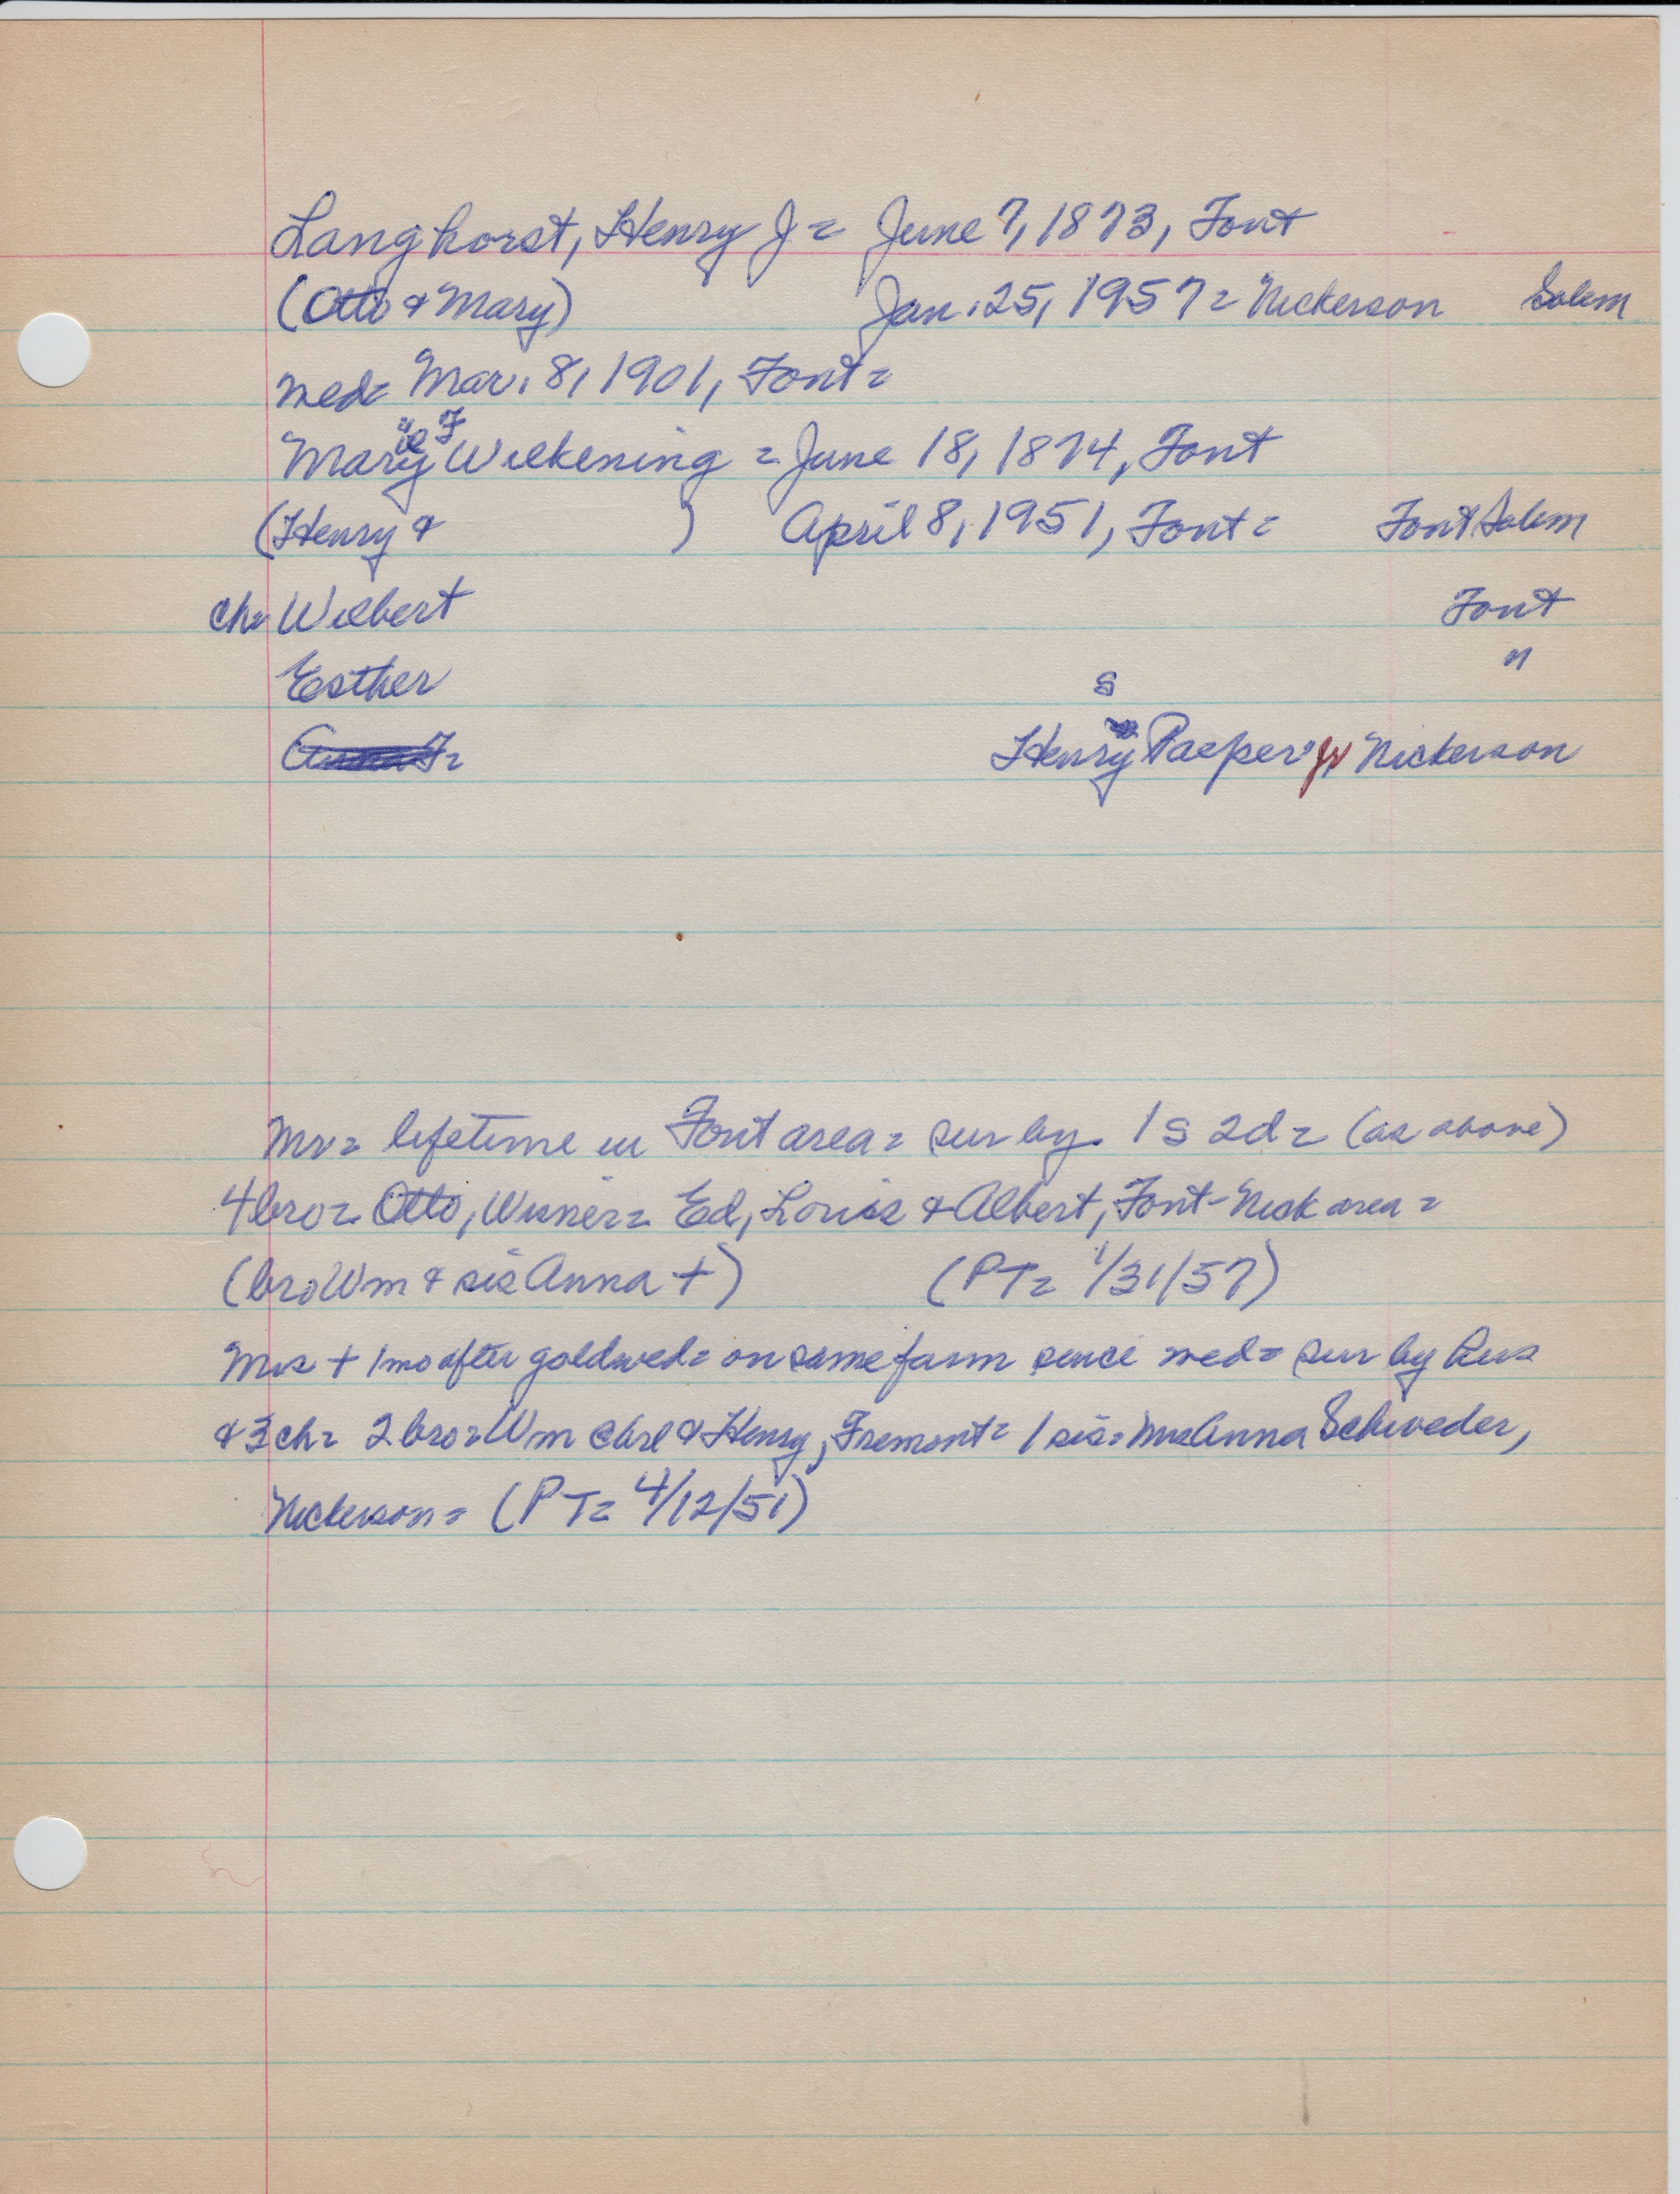 Langhorst, Henry J = June 7, 1873, Font
(Otto & Mary) Jan. 25, 1957 = Nickerson Salem
wed = Mar. 8, 1901, Font =
"ie F
Mary Wilkening = June 18, 1874, Font
(Henry & ) April 8, 1951, Font = Font Salem
ch = Wilbert Font
Esther "
s
Henry Paeper Jr Nickerson
Mr = lifetime in Font area = sur by 1 s 2d = (as above)
4 bro = Otto, Wisner = Ed, Louis & Albert, Font-Nick area =
(bro Wm & sis Anna +) (PT = 1/31/57)
Mrs + 1 mo after gold wed = on same farm since wed = sur by hus
& 3 ch = 2 bro = Wm Carl & Henry, Fremont = 1 sis = Mrs Anna Schweder,
Nickerson = (PT = 4/12/51)